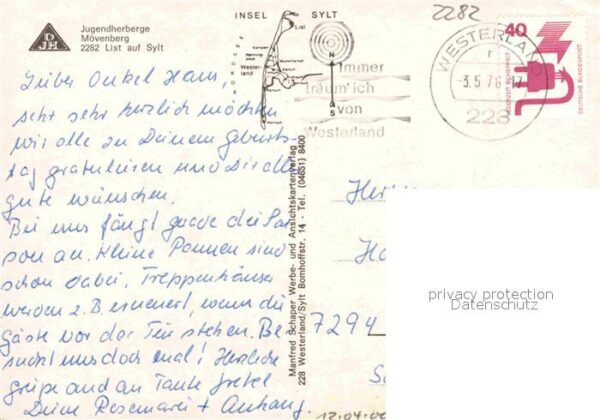 Jugendherberge
Mövenberg
2282 List auf Sylt
DJH
INSEL SYLT
NORDSEE
List
Wester-
land
N
S
Immer
träum' ich
von
Westerland
2282
WESTERLAND
-3.5.76-17
228
40
JEDERZEIT SICHERHEIT
DEUTSCHE BUNDESPOST
Lieber Onkel Hans,
sehr sehr herzlich möchten
wir alle zu Deinem Geburts-
tag gratulieren und Dir alles
gute wünschen.
Bei uns fängt gerade die Sai
son an. Kleine Pannen sind
schon dabei, Treppenhäuser
werden z.B. erneuert, wenn die
Gäste vor der Tür stehen. Be-
sucht uns doch mal! Herzliche
grüße auch an Tante Gretel
Deine Rosemarie + Anhang.
Manfred Schaper Werbe- und Ansichtskartenverlag
228 Westerland/Sylt Bomhoffstr. 14 - Tel. (04651) 8400
7294
privacy protection
Datenschutz